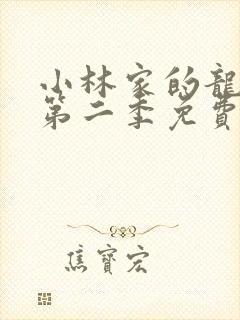 小林家的龍
第二季免費
焦寶宏